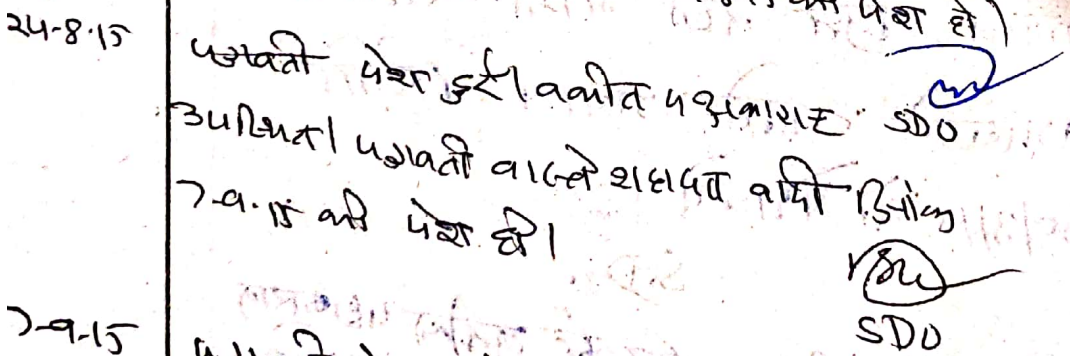 पेश हो)
24-8-15
पत्रावली पेश हुई। वकील पक्षकारान SDO
उपस्थित। पत्रावली वास्ते शहादत वादी दिनांक
7-9-15 को पेश हो।
SDO
7-9-15